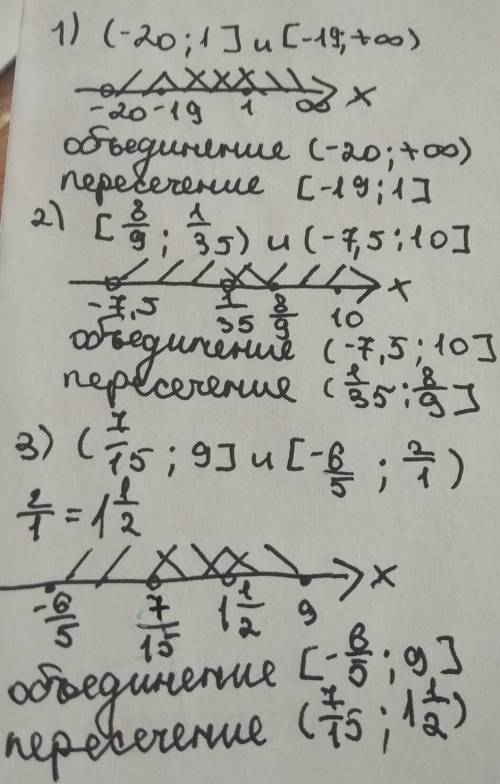 1) (-20; 1] и [-19; +∞)
-20 -19 1 ∞ x
объединение (-20; +∞)
пересечение [-19; 1]
2) [8/9; 1/35) и (-7,5; 10]
-7,5 1/35 8/9 10 x
объединение (-7,5; 10]
пересечение (1/35; 8/9]
3) (7/15; 9] и [-6/5; 2/1)
2/1 = 1 1/2
-6/5 7/15 1 1/2 9 x
объединение [-6/5; 9]
пересечение (7/15; 1 1/2)